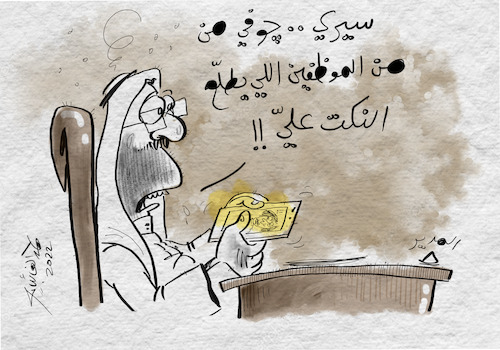 سيري .. چوفي من
من الموظفين اللي يطلع
النكت عليّ !!
المدير
2022